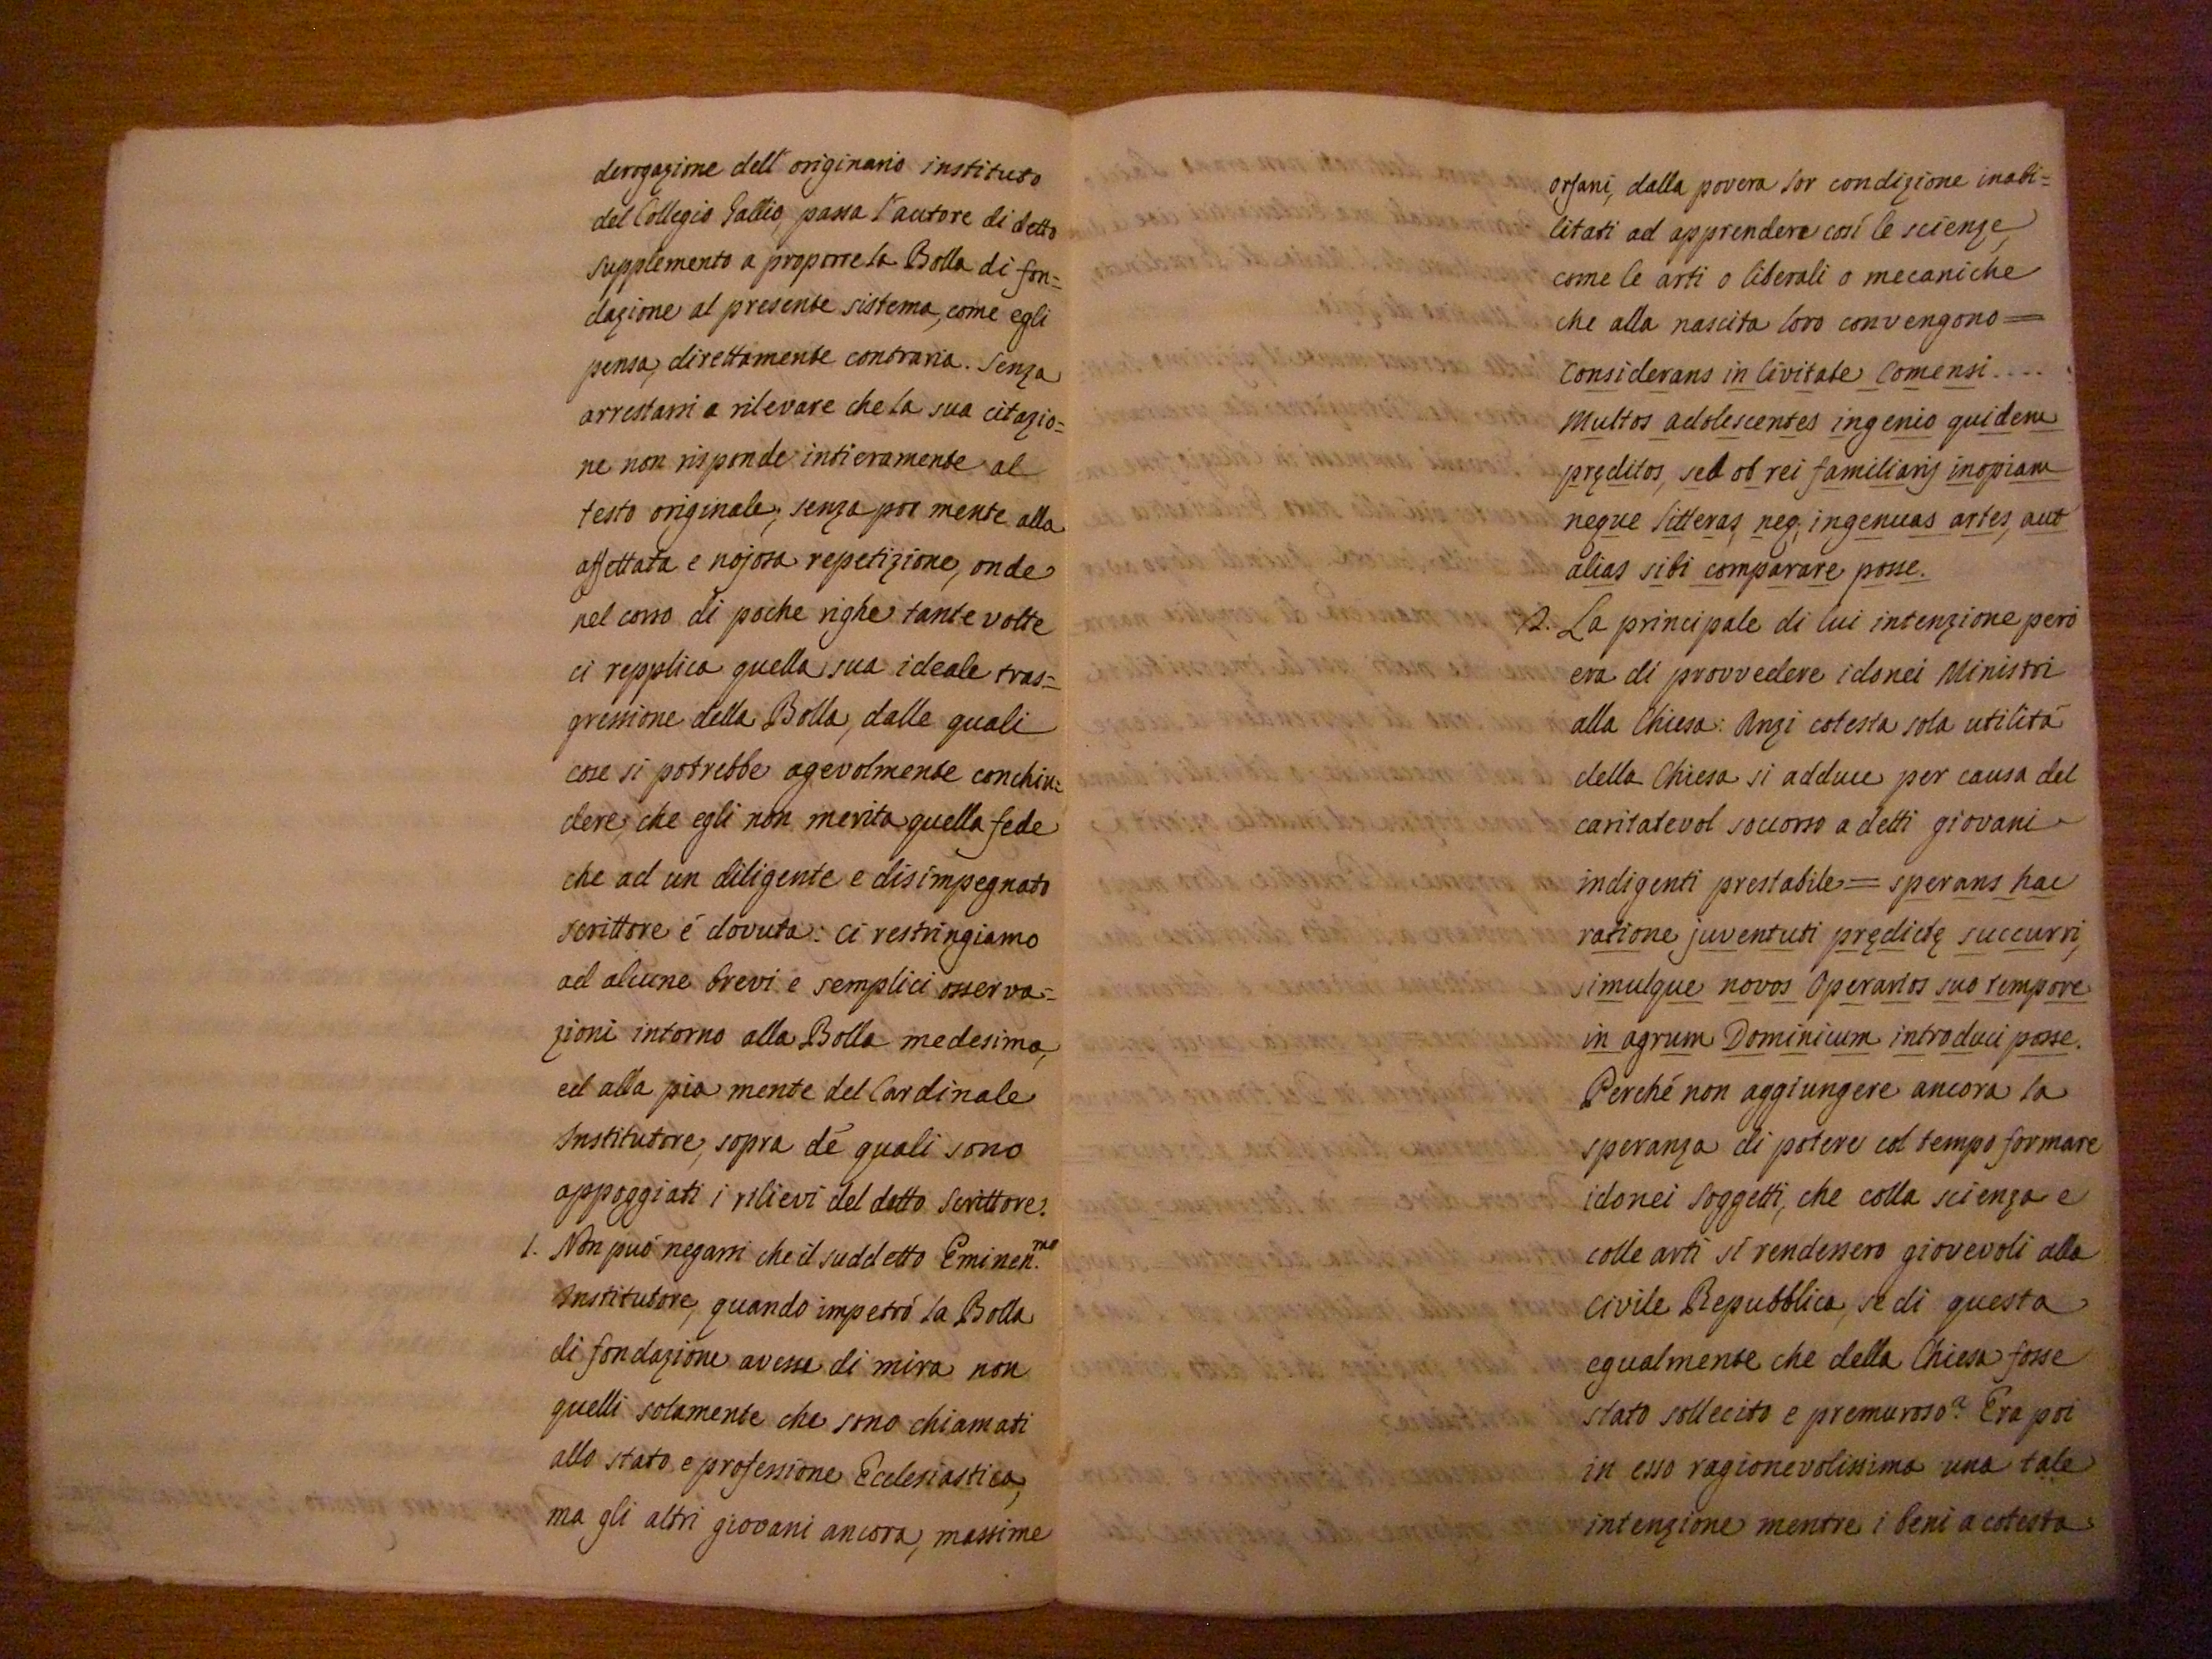 derogazione dell'originario instituto
del Collegio Gallio, passa l'autore di detto
supplemento a proporre la Bolla di fon=
dazione al presente sistema, come egli
pensa, direttamente contraria. Senza
arrestarsi a rilevare che la sua citazio=
ne non risponde intieramente al
testo originale; senza por mente alla
affettata e nojosa repetizione, onde
nel corso di poche righe tante volte
ci repplica quella sua ideale tras=
gressione della Bolla, dalle quali
cose si potrebbe agevolmente conchiu=
dere, che egli non merita quella fede
che ad un diligente e disimpegnato
scrittore é dovuta: ci restringiamo
ad alcune brevi e semplici osserva=
zioni intorno alla Bolla medesima,
ed alla pia mente del Cardinale
Institutore, sopra dé quali sono
appoggiati i rilievi del detto Scrittore.
1. Non puó negarsi che il suddetto Eminen.mo
Institutore, quando impetró la Bolla
di fondazione avesse di mira non
quelli solamente che sono chiamati
allo stato e professione Ecclesiastica,
ma gli altri giovani ancora, massime
orfani, dalla povera lor condizione inabi=
litati ad apprendere cosí le scienze,
come le arti o liberali o mecaniche
che alla nascita loro convengono=
Considerans in Civitate Comensi....
Multos adolescentes ingenio quidem
pręditos, sed ob rei familiaris inopiam
neque litteras, neq; ingenuas artes, aut
alias sibi comparare posse.
2. La principale di lui intenzione peró
era di provvedere idonei Ministri
alla Chiesa: Anzi cotesta sola utilitá
della Chiesa si adduce per causa del
caritatevol soccorso a detti giovani
indigenti prestabile= sperans hac
ratione juventuti prędictę succurri,
simulque novos Operarios suo tempore
in agrum Dominicum introduci posse.
Perché non aggiungere ancora la
speranza di potere col tempo formare
idonei Soggetti, che colla scienza e
colle arti si rendessero giovevoli alla
Civile Repubblica, se di questa
egualmente che della Chiesa fosse
stato sollecito e premuroso? Era poi
in esso ragionevolissima una tale
intenzione mentre i beni a cotesta